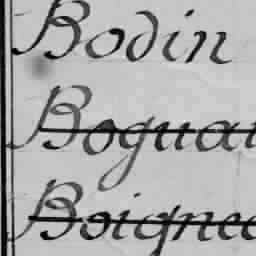 Bodin
Boguai
Boignec